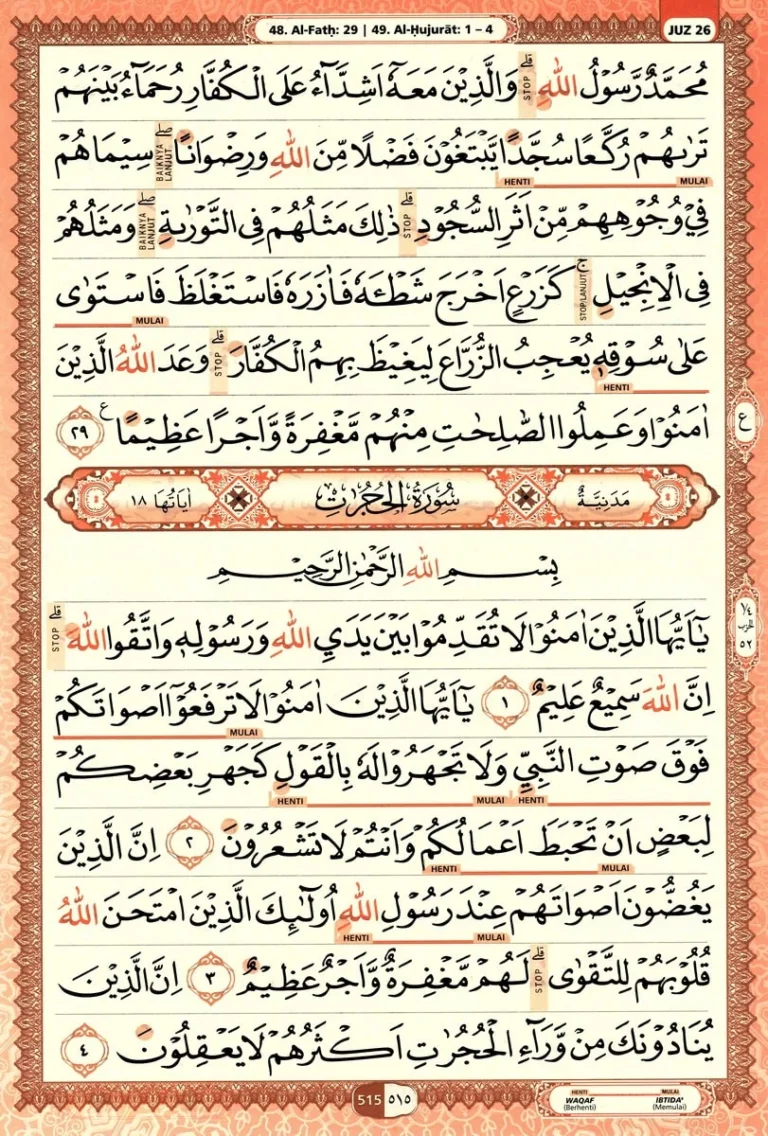 48. Al-Fatḥ: 29 | 49. Al-Ḥujurāt: 1 – 4
JUZ 26
مُحَمَّدٌ رَّسُوْلُ اللّٰهِ ۗ STOP وَالَّذِيْنَ مَعَهٗٓ اَشِدَّاۤءُ عَلَى الْكُفَّارِ رُحَمَاۤءُ بَيْنَهُمْ
تَرٰىهُمْ رُكَّعًا سُجَّدًا يَّبْتَغُوْنَ فَضْلًا مِّنَ اللّٰهِ وَرِضْوَانًا ۖ BAIKNYA LANJUT سِيْمَاهُمْ
HENTI MULAI
فِيْ وُجُوْهِهِمْ مِّنْ اَثَرِ السُّجُوْدِ ۗ STOP ذٰلِكَ مَثَلُهُمْ فِى التَّوْرٰىةِ ۖ BAIKNYA LANJUT وَمَثَلُهُمْ
فِى الْاِنْجِيْلِ ۚ STOP/LANJUT كَزَرْعٍ اَخْرَجَ شَطْـَٔهٗ فَاٰزَرَهٗ فَاسْتَغْلَظَ فَاسْتَوٰى
MULAI
عَلٰى سُوْقِهٖ يُعْجِبُ الزُّرَّاعَ لِيَغِيْظَ بِهِمُ الْكُفَّارَ ۗ STOP وَعَدَ اللّٰهُ الَّذِيْنَ
١ HENTI
اٰمَنُوْا وَعَمِلُوا الصّٰلِحٰتِ مِنْهُمْ مَّغْفِرَةً وَّاَجْرًا عَظِيْمًا ࣖ ٢٩
ع
مَدَنِيَّةٌ سُوْرَةُ الْحُجُرٰتِ اٰيَاتُهَا ١٨
بِسْمِ اللّٰهِ الرَّحْمٰنِ الرَّحِيْمِ
يٰٓاَيُّهَا الَّذِيْنَ اٰمَنُوْا لَا تُقَدِّمُوْا بَيْنَ يَدَيِ اللّٰهِ وَرَسُوْلِهٖ وَاتَّقُوا اللّٰهَ ۗ STOP
١/٤ الحزب ٥٢
اِنَّ اللّٰهَ سَمِيْعٌ عَلِيْمٌ ١ يٰٓاَيُّهَا الَّذِيْنَ اٰمَنُوْا لَا تَرْفَعُوْٓا اَصْوَاتَكُمْ
MULAI
فَوْقَ صَوْتِ النَّبِيِّ وَلَا تَجْهَرُوْا لَهٗ بِالْقَوْلِ كَجَهْرِ بَعْضِكُمْ
HENTI MULAI HENTI
لِبَعْضٍ اَنْ تَحْبَطَ اَعْمَالُكُمْ وَاَنْتُمْ لَا تَشْعُرُوْنَ ٢ اِنَّ الَّذِيْنَ
HENTI MULAI
يَغُضُّوْنَ اَصْوَاتَهُمْ عِنْدَ رَسُوْلِ اللّٰهِ اُولٰۤىِٕكَ الَّذِيْنَ امْتَحَنَ اللّٰهُ
HENTI MULAI
قُلُوْبَهُمْ لِلتَّقْوٰى ۗ STOP لَهُمْ مَّغْفِرَةٌ وَّاَجْرٌ عَظِيْمٌ ٣ اِنَّ الَّذِيْنَ
يُنَادُوْنَكَ مِنْ وَّرَاۤءِ الْحُجُرٰتِ اَكْثَرُهُمْ لَا يَعْقِلُوْنَ ٤
515 ٥١٥
HENTI MULAI
WAQAF IBTIDA'
(Berhenti) (Memulai)